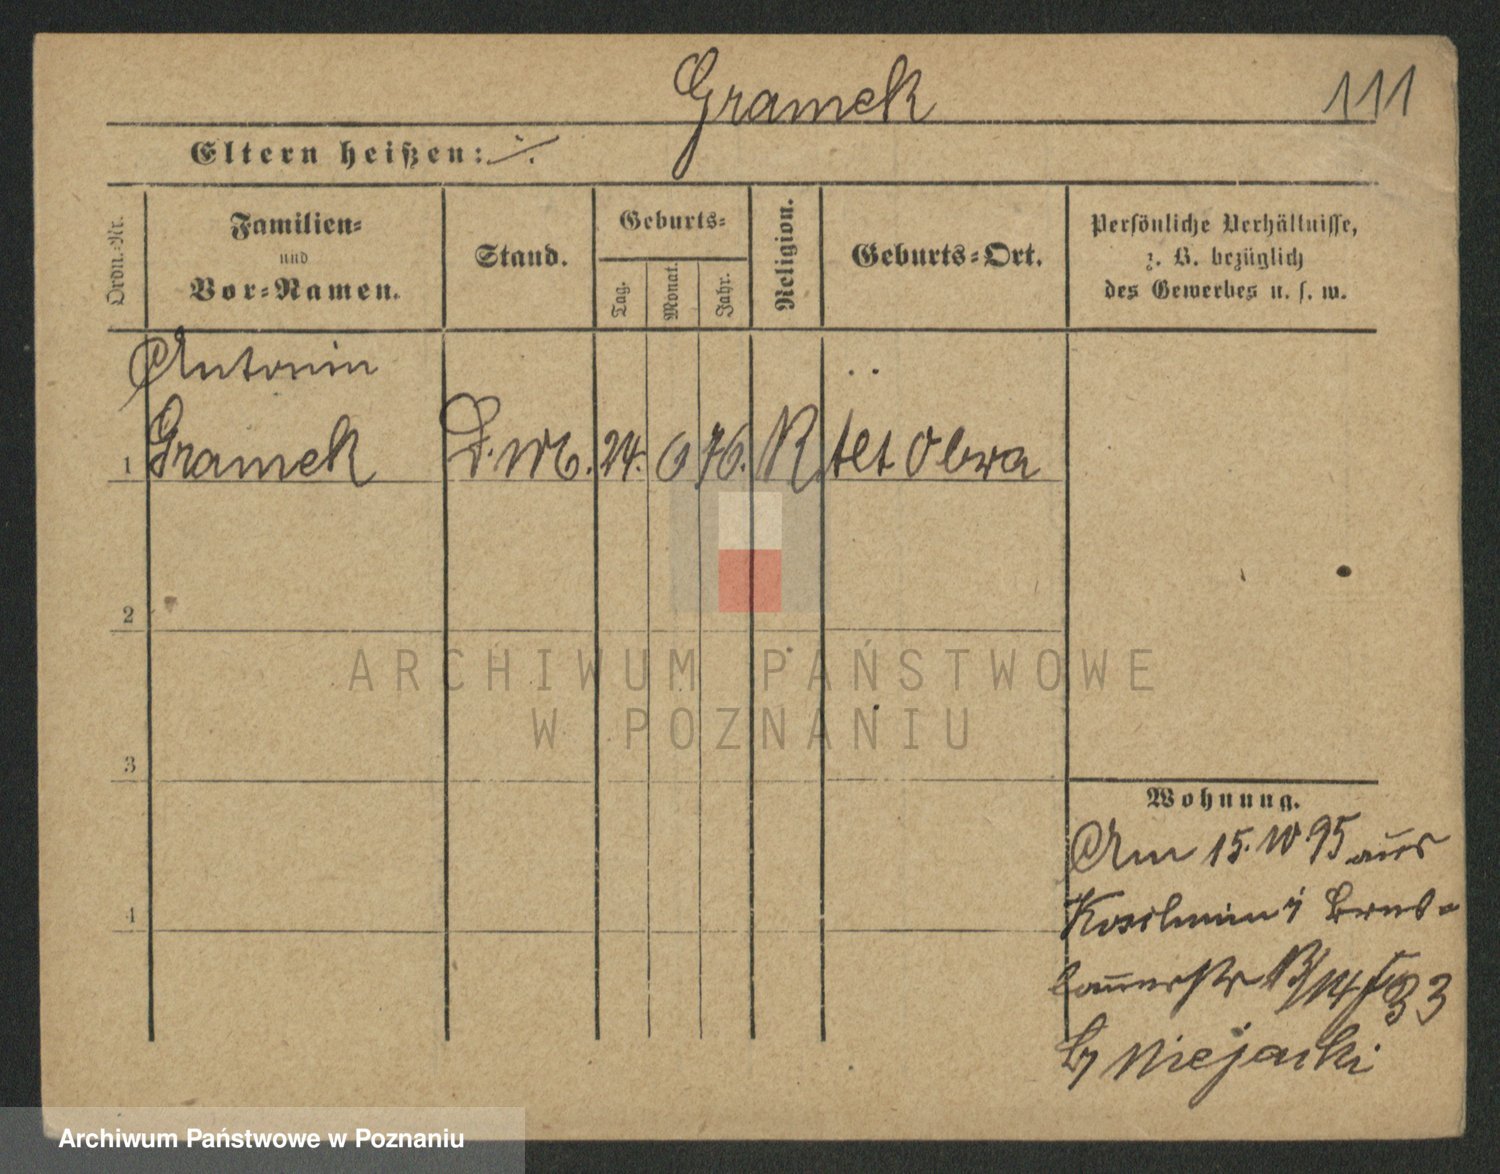 Gramek
111
Eltern heißen: ./.
Ordn.-Nr.
Familien=
und
Vor=Namen.
Stand.
Geburts=
Tag.
Monat.
Jahr.
Religion.
Geburts=Ort.
Persönliche Verhältnisse,
z. B. bezüglich
des Gewerbes u. s. w.
Antonin
1 Gramek D. M. 24. 6 76. K Alt Obra
2
3
4
Wohnung.
Am 15. 10 95 aus
Koschmin
14 33
Niejacki
ARCHIWUM PAŃSTWOWE
W POZNANIU
Archiwum Państwowe w Poznaniu